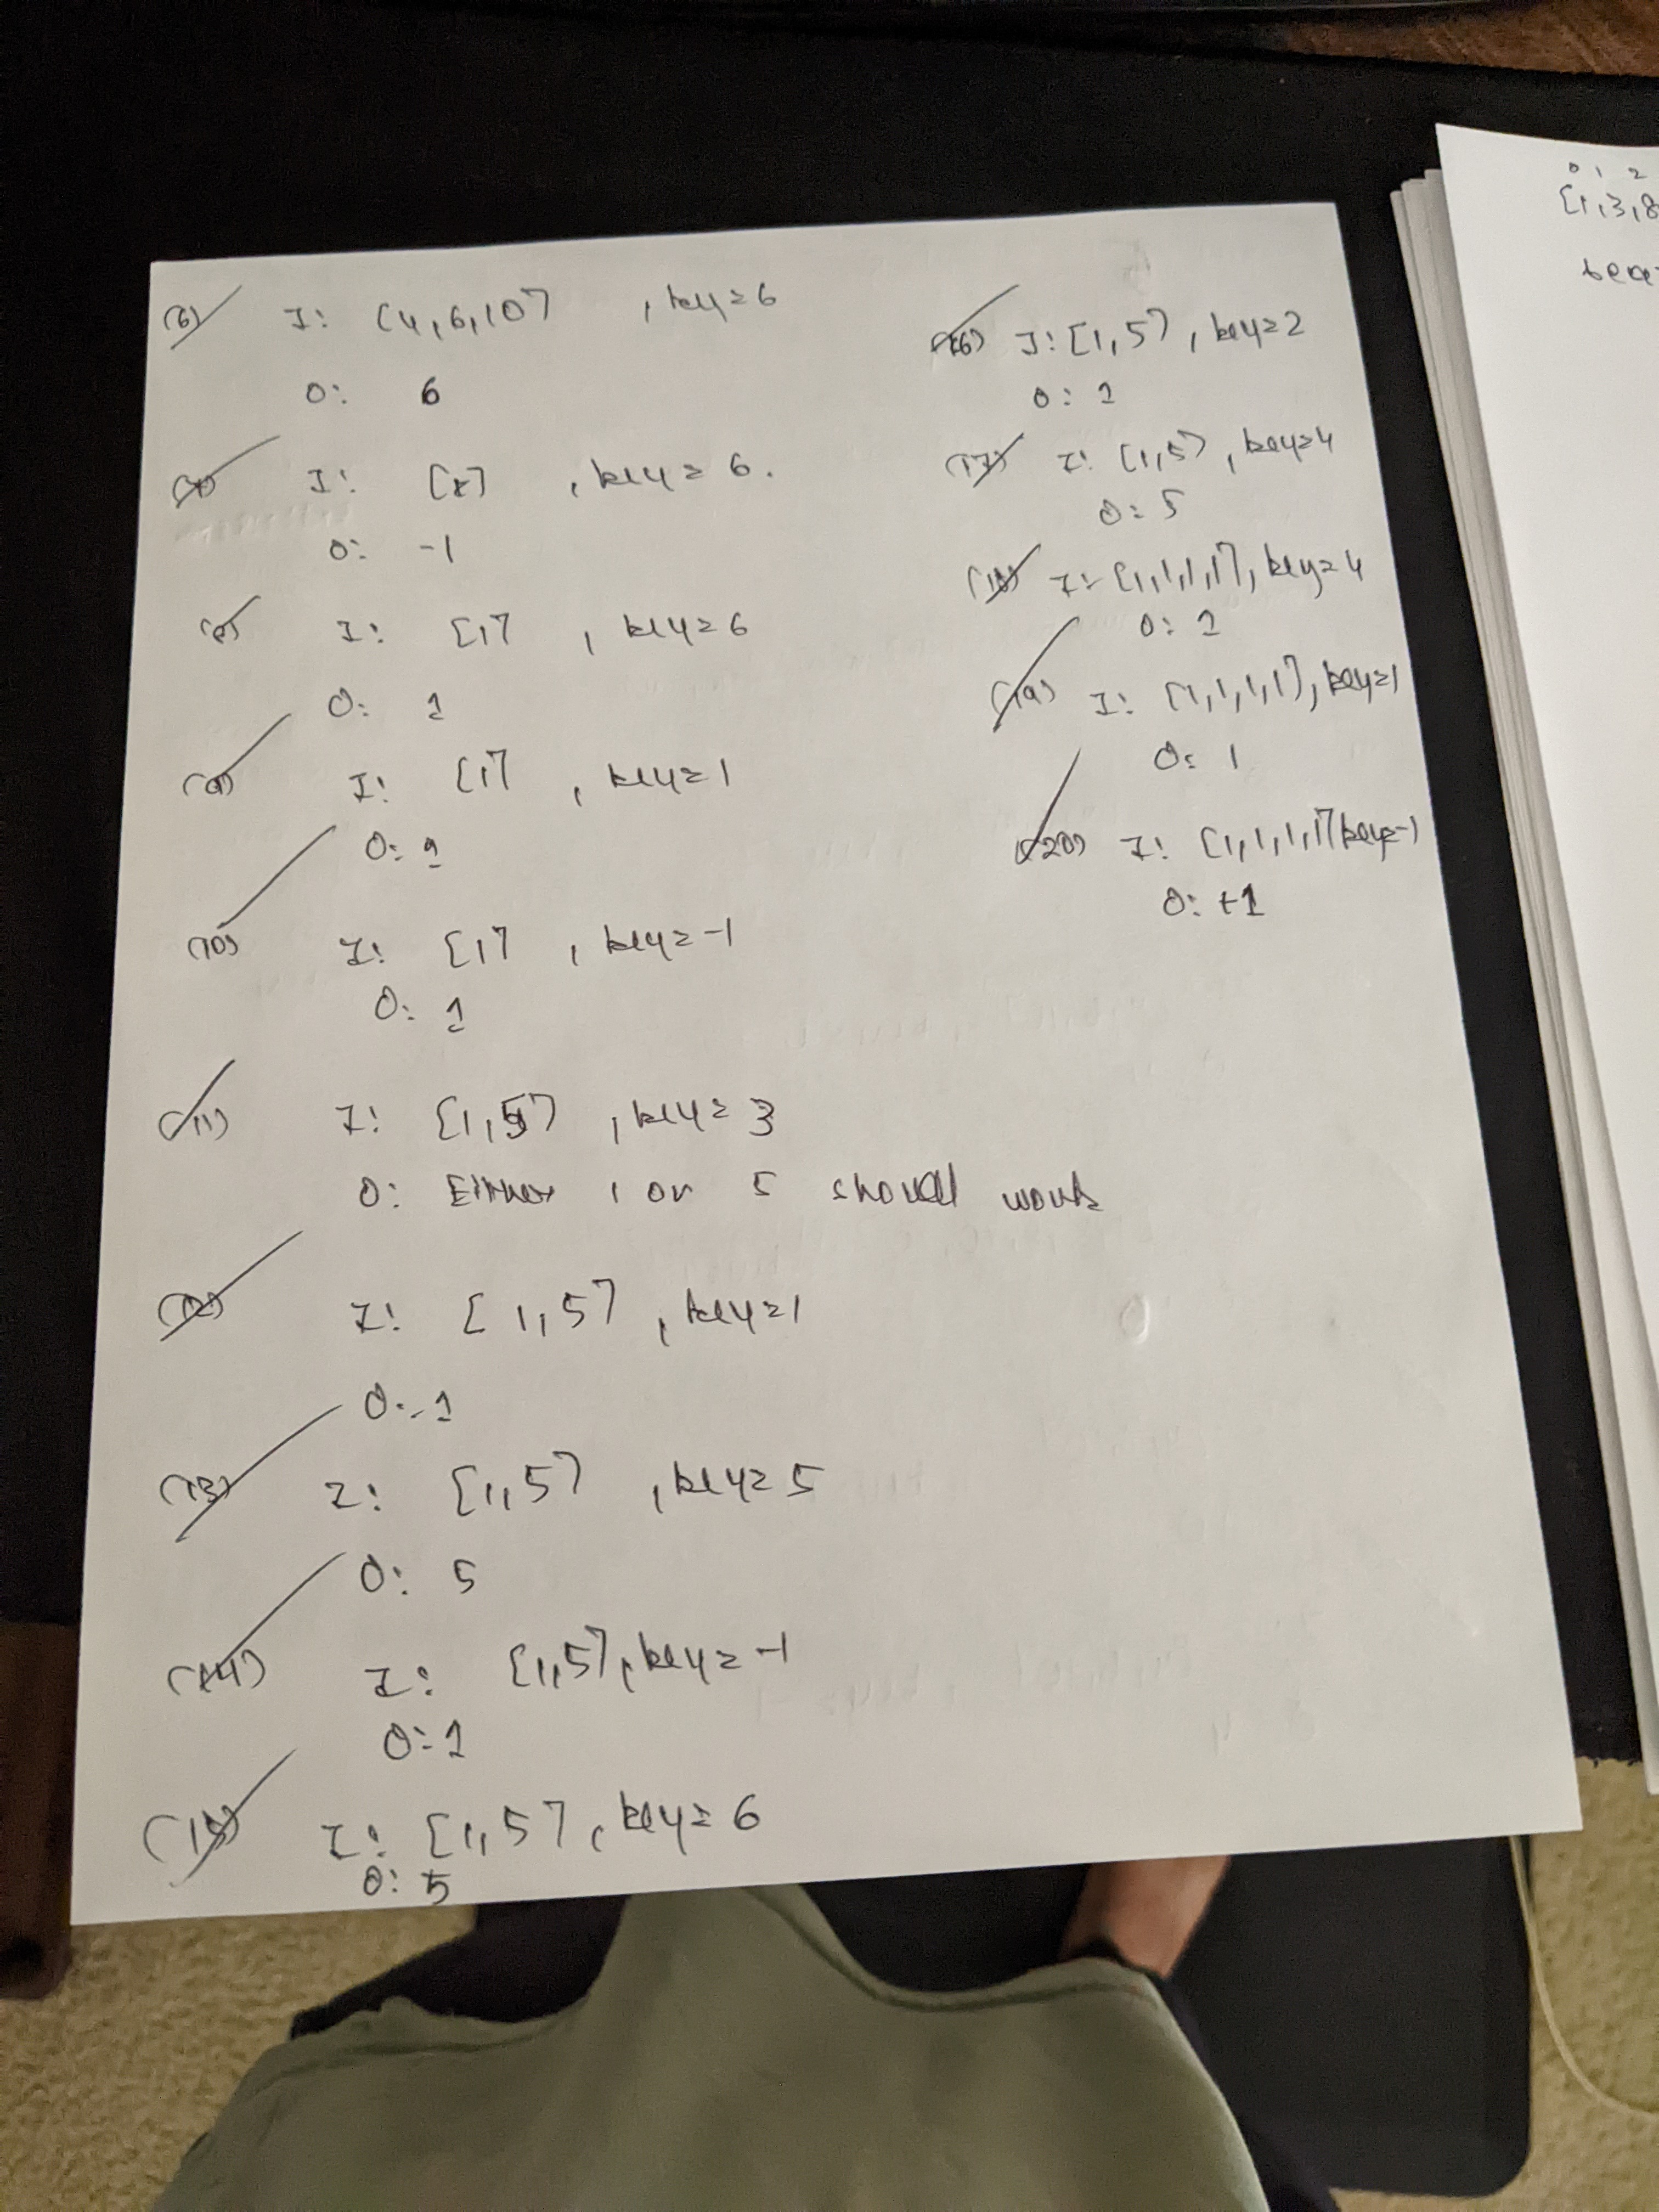 (6) I: [4,6,10] , key=6
O: 6
(7) I: [x] , key=6.
O: -1
(8) I: [1] , key=6
O: 1
(9) I: [1] , key=1
O: 1
(10) I: [1] , key=-1
O: 1
(11) I: [1,5] , key=3
O: Either 1 or 5 should work
(12) I: [1,5] , key=1
O: 1
(13) I: [1,5] , key=5
O: 5
(14) I: [1,5], key=-1
O: 1
(15) I: [1,5], key=6
O: 5
(16) I: [1,5], key=2
O: 1
(17) I: [1,5], key=4
O: 5
(18) I: [1,1,1,1], key=4
O: 1
(19) I: [1,1,1,1], key=1
O: 1
(20) I: [1,1,1,1] key=-1
O: +1
0 1 2
[1,3,8